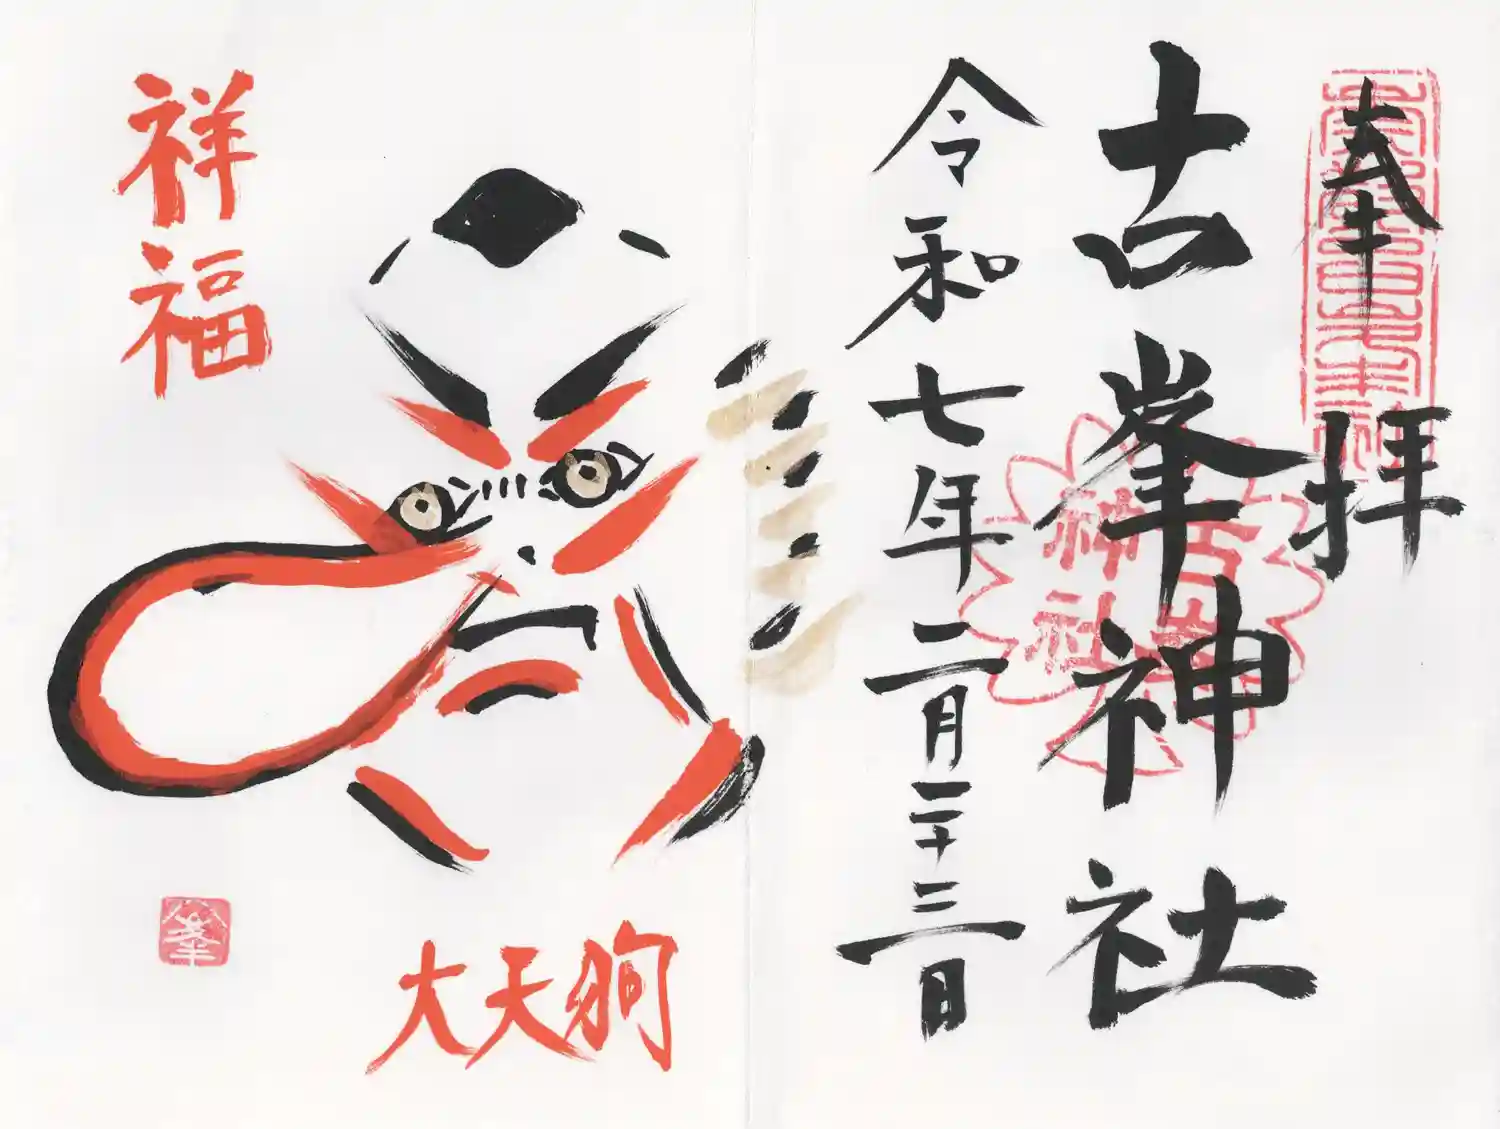 奉拝
古峯神社
古峯
神社
令和七年二月二十三日
祥福
大天狗
峯